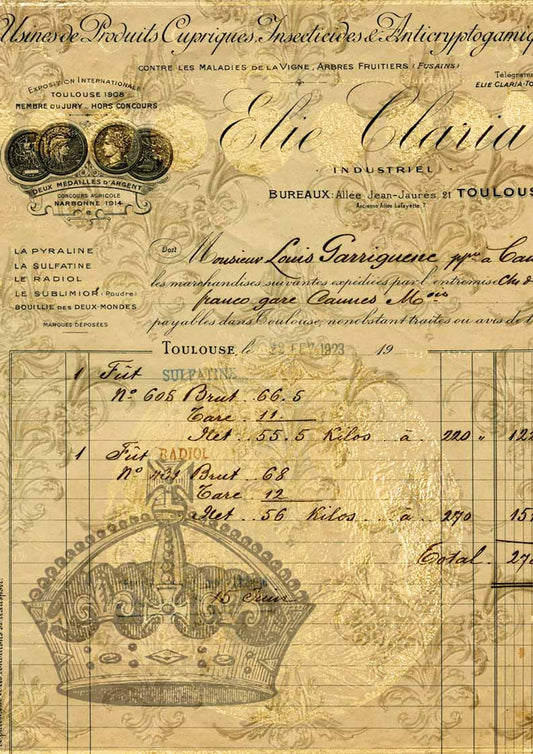 Usines de Produits Cupriques, Insecticides & Anticryptogamiq
CONTRE LES MALADIES DE LA VIGNE, ARBRES FRUITIERS (FUSAINS)
Télégram
ELIE CLARIA-TO
EXPOSITION INTERNATIONALE
TOULOUSE 1908
MEMBRE DU JURY _ HORS CONCOURS
Elie Claria
INDUSTRIEL
DEUX MÉDAILLES D'ARGENT
CONCOURS AGRICOLE
NARBONNE 1914
BUREAUX: Allée Jean-Jaurès, 21 TOULOUS
Ancienne Allée Lafayette, 7
LA PYRALINE
LA SULFATINE
LE RADIOL
LE SUBLIMIOR (Poudre)
BOUILLIE DES DEUX-MONDES
MARQUES DÉPOSÉES
Doit Monsieur Louis Garriguenc ppre à Cau
les marchandises suivantes expédiées par l'entremise Ch. d
franco gare Caunes Mois
payables dans Toulouse, nonobstant traites ou avis de t
TOULOUSE, le 23 FEV 1923 19
1 Fût SULFATINE
No 608 Brut 66.5
Tare 11
Net 55.5 Kilos à 220 " 122
1 Fût RADIOL
No 421 Brut 68
Tare 12
Net 56 Kilos à 270 15
Total 27
15 Juin